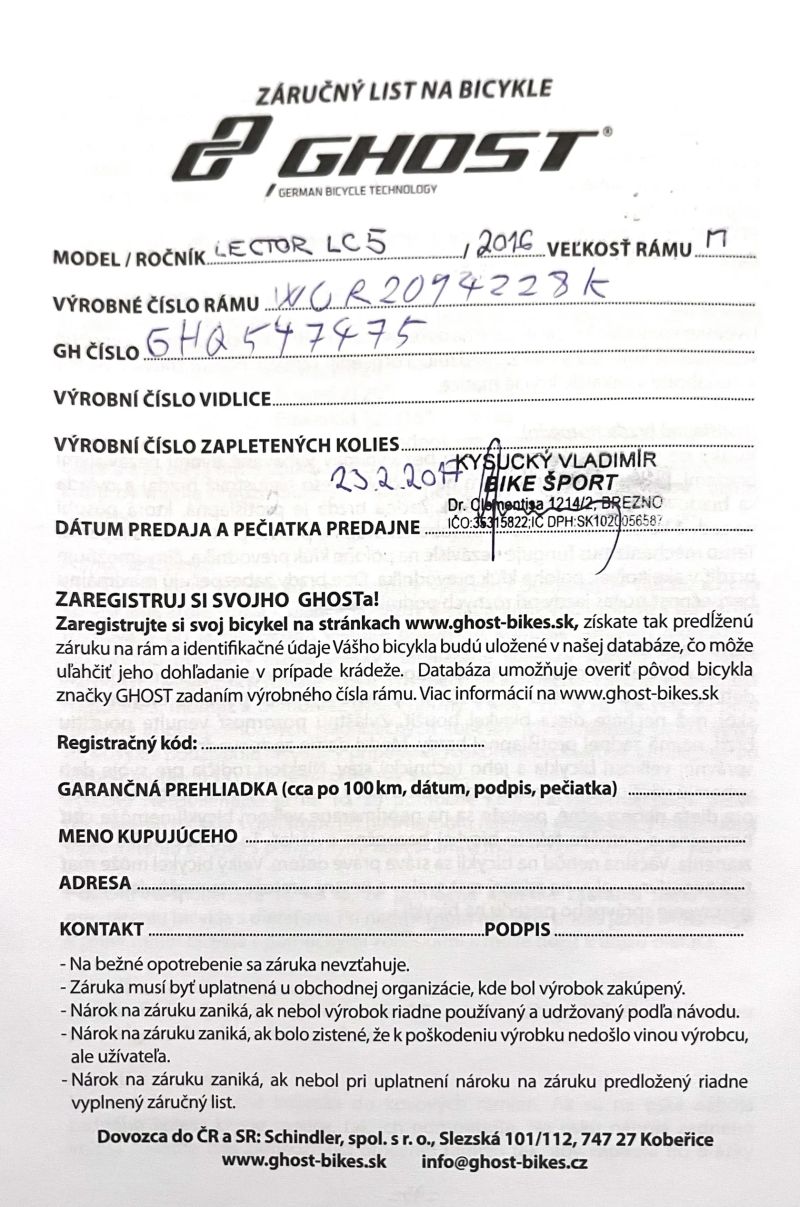 ZÁRUČNÝ LIST NA BICYKLE
GHOST®
GERMAN BICYCLE TECHNOLOGY
MODEL / ROČNÍK LECTOR LC5 / 2016 VEĽKOSŤ RÁMU M
VÝROBNÉ ČÍSLO RÁMU WCR2094228K
GH ČÍSLO GHQ547475
VÝROBNÍ ČÍSLO VIDLICE
VÝROBNÍ ČÍSLO ZAPLETENÝCH KOLIES
KYSUCKÝ VLADIMÍR
23.2.2017 BIKE ŠPORT
Dr. Clementisa 1214/2, BREZNO
IČO:35315822;IČ DPH:SK1020056587
DÁTUM PREDAJA A PEČIATKA PREDAJNE
ZAREGISTRUJ SI SVOJHO GHOSTa!
Zaregistrujte si svoj bicykel na stránkach www.ghost-bikes.sk, získate tak predĺženú
záruku na rám a identifikačné údaje Vášho bicykla budú uložené v našej databáze, čo môže
uľahčiť jeho dohľadanie v prípade krádeže. Databáza umožňuje overiť pôvod bicykla
značky GHOST zadaním výrobného čísla rámu. Viac informácií na www.ghost-bikes.sk
Registračný kód:
GARANČNÁ PREHLIADKA (cca po 100 km, dátum, podpis, pečiatka)
MENO KUPUJÚCEHO
ADRESA
KONTAKT PODPIS
- Na bežné opotrebenie sa záruka nevzťahuje.
- Záruka musí byť uplatnená u obchodnej organizácie, kde bol výrobok zakúpený.
- Nárok na záruku zaniká, ak nebol výrobok riadne používaný a udržovaný podľa návodu.
- Nárok na záruku zaniká, ak bolo zistené, že k poškodeniu výrobku nedošlo vinou výrobcu,
ale užívateľa.
- Nárok na záruku zaniká, ak nebol pri uplatnení nároku na záruku predložený riadne
vyplnený záručný list.
Dovozca do ČR a SR: Schindler, spol. s r. o., Slezská 101/112, 747 27 Kobeřice
www.ghost-bikes.sk info@ghost-bikes.cz